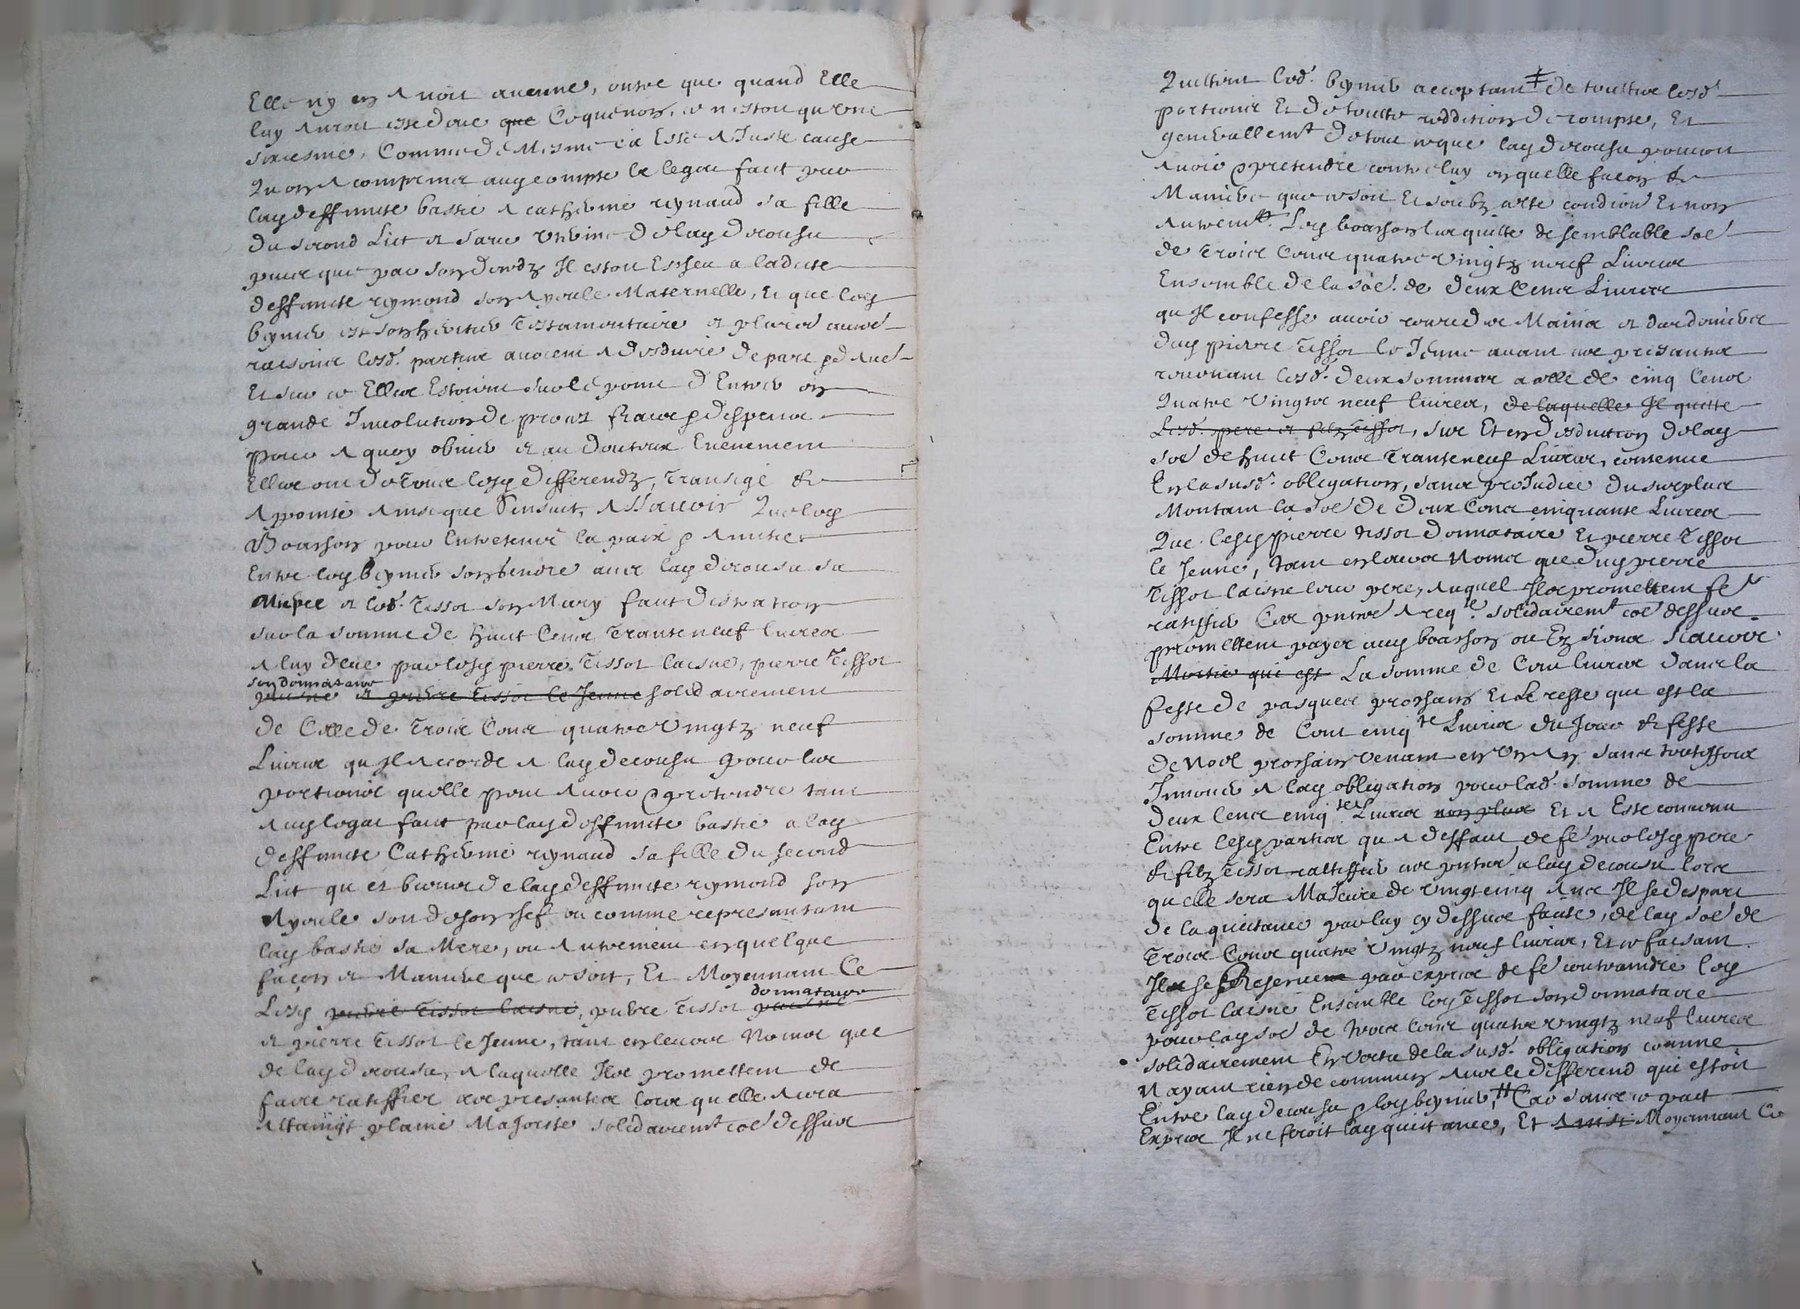 Elle ny en avoit aucune, outre que quand Elle
luy auroit cedée que Ce quenon, ce nestoit qu'une
sixiesme, Comme de Mesme ca Esté a Juste cause
Qu on a comprins aud compte le legat fait par
lad deffuncte bastie a catherine reynaud sa fille
du second Lict et sœur uterine de lad decousu
parce que par son dexcedz Il estoit Escheu a ladicte
deffuncte reymond son ayeule Maternelle, Et que led
beymer est son heritier Testamentaire et plusrs autres
raisons lesd. parties avoient a desduire de part et d'autre
Et sur ce Elles Estoient sur le point d'Entrer en
grande Involution de proces fraix et despence
pour a quoy obvier et au doubteux Evenement
Elles ont de tous lesd differendz, Transigé et
apointé ainsi que S'ensuit, assavoir Que led
Boasson pour Entretenir la paix et amitie
Entre led beymer son gendre avec lad decousu sa
Niepce et led. Tissot son Mary faict desduction
sur la somme de huict Cens Trante neuf livres
a luy deue par lesd pierre Tissot laisné, pierre Tissot
son donnataire
et pierre Tissot le Jeune solidairement
de Celle de Trois Cens quatre vingtz neuf
Livres qu Il accorde a lad decousu pour les
portions quelle peut avoir et pretendre tant
aud legat faict par lad deffuncte bastie a lad
deffuncte Catherine reynaud sa fille du second
Lict qu ez biens de lad deffuncte reymond son
Ayeule soit de son chef ou comme representant
lad bastie sa Mere, ou autrement en quelque
façon et Maniere que ce soit, Et Moyennant Ce
donnataire
Lesd pierre Tissot laisné, pierre Tissot
et pierre Tissot le Jeune, tant en leurs Noms que
de lad decousu, a laquelle Ilz promettent de
faire ratiffier ces presantes lors quelle aura
attaint plaine Majorité solidairemt com dessus
Quittent led. beymer acceptant ‡ de touttes lesd
portions Et de toutte reddition de compte, Et
generallemt de tout ce que lad decousu pouvoit
avoir et pretendre contre luy en quelle façon et
Maniere que ce soit Et soubz ceste condion Et non
autremt. Led boasson les quitte de semblable soe
de Trois Cens quatre vingtz neuf Livres
Ensemble de la soe. de deux Cens Livres
qu Il confesse avoir receu des Mains et des deniers
dud pierre Tissot le Jeune avant ces presantes
revenant lesd. deux sommes a celle de cinq Cens
Quatre vingtz neuf livres, de laquelle Il quitte
Lesd. pere et filz Tissot, sur Et en desduction de lad
soe de huict Cens Trante neuf Livres, contenue
En la susd. obligation, sans prejudice du surplus
Montant la soe de Deux Cens cinquante Livres
Que lesd pierre Tissot donnataire Et pierre Tissot
le Jeune, tant en leurs Noms que dud pierre
Tissot laisné leur pere, auquel Ilz promettent fe
ratiffier Ces pntes a reqte. solidairemt coe dessus
promettent payer aud boasson ou Ez siens scavoir
Moitié qui est La somme de Cent livres dans la
feste de pasques prochain Et Le reste qui est la
somme de Cent cinqte Livres du Jour et feste
de Noel prochain venant en Un An sans touttesfois
Innover a lad obligation pour lad. somme de
deux Cens cinqte Livres non plus Et a Esté convenu
Entre lesd parties qu a deffaut de fe par lesd pere
et filz Tissot ratiffier ces pntes a lad decousu lors
qu elle sera Majeure de vingt cinq Ans Il se despart
de la quittance par luy cy dessus faite, de lad soe de
Trois Cens quatre vingtz neuf livres, Et ce faisant
Il se Reserve par exprez de fe contraindre led
Tissot laisné Ensemble led Tissot son donnataire
pour lad soe de trois Cens quatre vingtz neuf livres
solidairement En vertu de la susd. obligation comme
N ayant rien de commun avec le differend qui estoit
Entre lad decousu et led beymer, Car sans ce pact
Exprez Il ne feroit lad quittance, Et Moyennant Ce